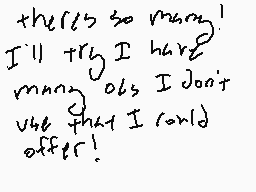 theres so many!
I'll try I have
many ocs I don't
use that I could
offer!